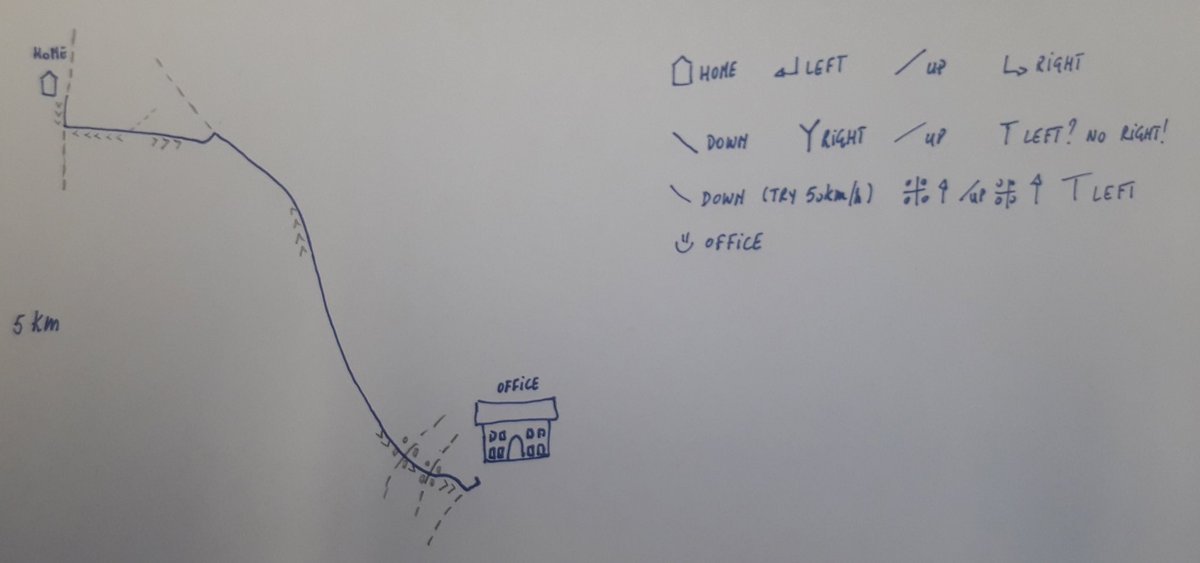 HOME
5 km
OFFICE
HOME LEFT UP RIGHT
DOWN RIGHT UP LEFT? NO RIGHT!
DOWN (TRY 50km/h) UP LEFT
OFFICE